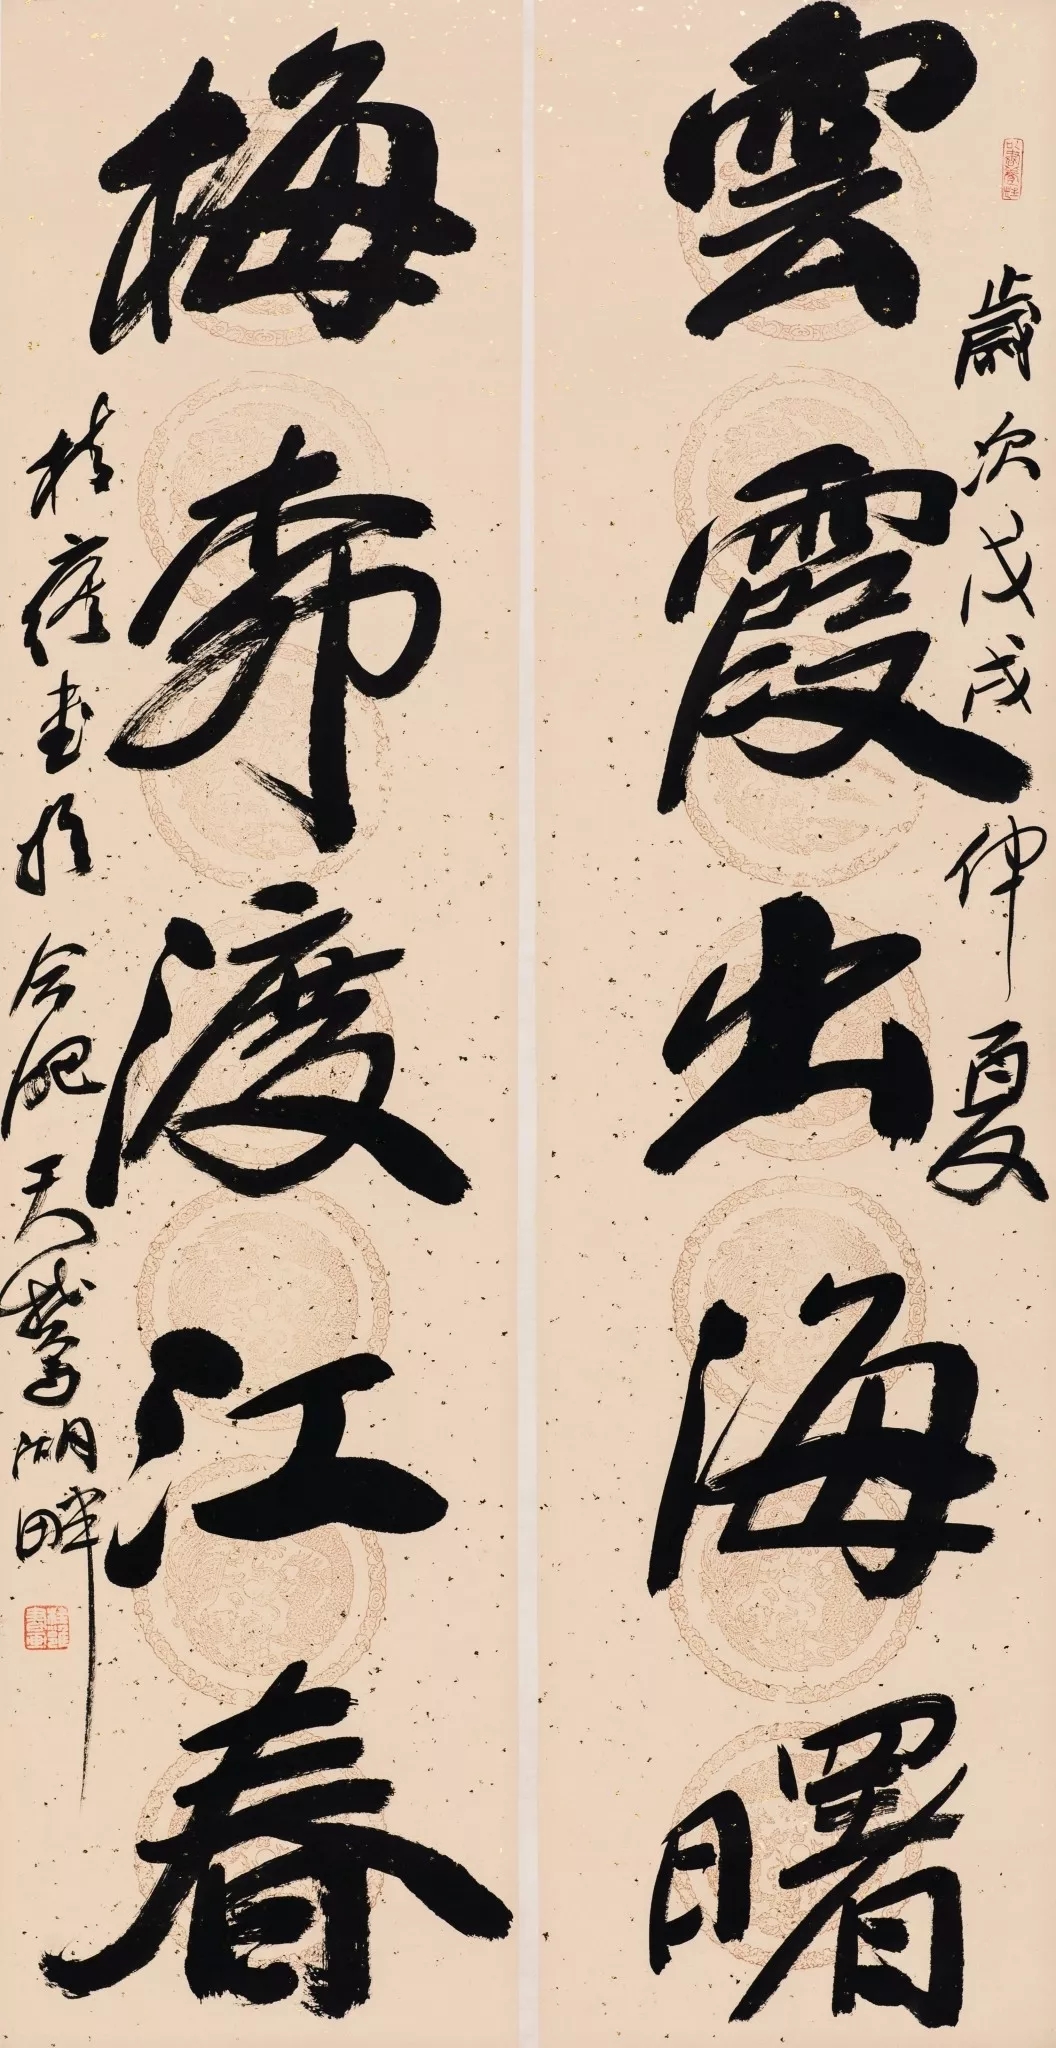 歲次戊戌仲夏
雲霞出海曙
梅柳渡江春
書於合肥天鵝湖畔